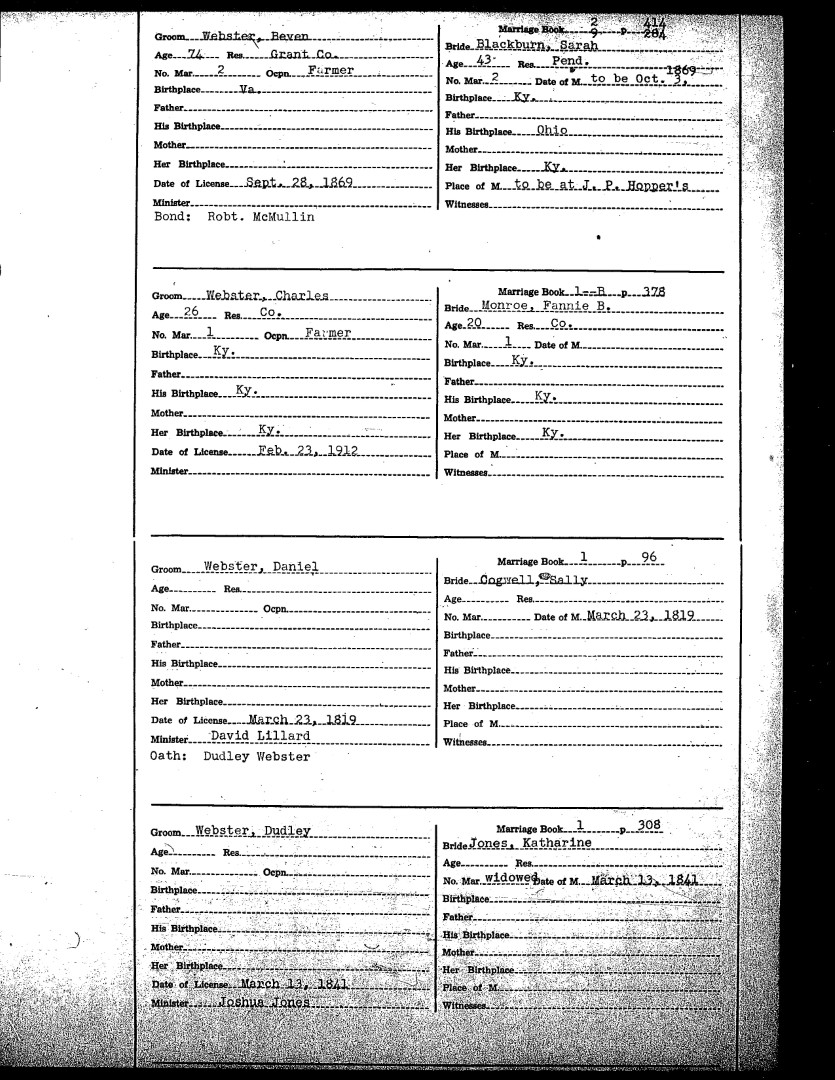 Groom Webster, Beven
Age 74 Res. Grant Co.
No. Mar. 2 Ocpn. Farmer
Birthplace Va.
Father
His Birthplace
Mother
Her Birthplace
Date of License Sept. 28, 1869
Minister
Bond: Robt. McMullin
Marriage Book 2 p. 414
9 284
Bride Blackburn, Sarah
Age 43 Res. Pend.
1869
No. Mar. 2 Date of M. to be Oct. 3,
Birthplace Ky.
Father
His Birthplace Ohio
Mother
Her Birthplace Ky.
Place of M. to be at J. P. Hopper's
Witnesses
Groom Webster, Charles
Age 26 Res. Co.
No. Mar. 1 Ocpn. Farmer
Birthplace Ky.
Father
His Birthplace Ky.
Mother
Her Birthplace Ky.
Date of License Feb. 23, 1912
Minister
Marriage Book 1--B p. 378
Bride Monroe, Fannie B.
Age 20 Res. Co.
No. Mar. 1 Date of M.
Birthplace Ky.
Father
His Birthplace Ky.
Mother
Her Birthplace Ky.
Place of M.
Witnesses
Groom Webster, Daniel
Age Res.
No. Mar. Ocpn.
Birthplace
Father
His Birthplace
Mother
Her Birthplace
Date of License March 23, 1819
Minister David Lillard
Oath: Dudley Webster
Marriage Book 1 p. 96
Bride Cogwell, Sally
Age Res.
No. Mar. Date of M. March 23, 1819
Birthplace
Father
His Birthplace
Mother
Her Birthplace
Place of M.
Witnesses
Groom Webster, Dudley
Age Res.
No. Mar. Ocpn.
Birthplace
Father
His Birthplace
Mother
Her Birthplace
Date of License March 13, 1841
Minister Joshua Jones
Marriage Book 1 p. 308
Bride Jones, Katharine
Age Res.
No. Mar. widowed Date of M. March 13, 1841
Birthplace
Father
His Birthplace
Mother
Her Birthplace
Place of M.
Witnesses